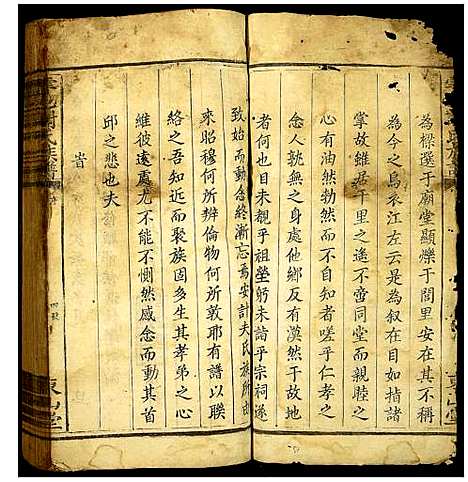 為樑選于廟堂顯爍于閭里安在其不稱
為今之烏衣江左云是為叙在目如指諸
掌故雖居千里之遙不啻同堂而親睦之
心有油然勃然而不自知者嗟乎仁孝之
念人孰無之身處他鄉反有漠然于所生
者何也目未覩乎祖塋躬未詣乎宗祠遂
致始而動念終漸忘焉安計夫氏族所由
來昭穆何所辨倫物何所敦耶有譜以聯
絡之吾知近而聚族固多生其孝弟之心
維彼遠處尤不能不惻然感念而興其首
邱之悲也夫
皆
氏族譜
東山堂